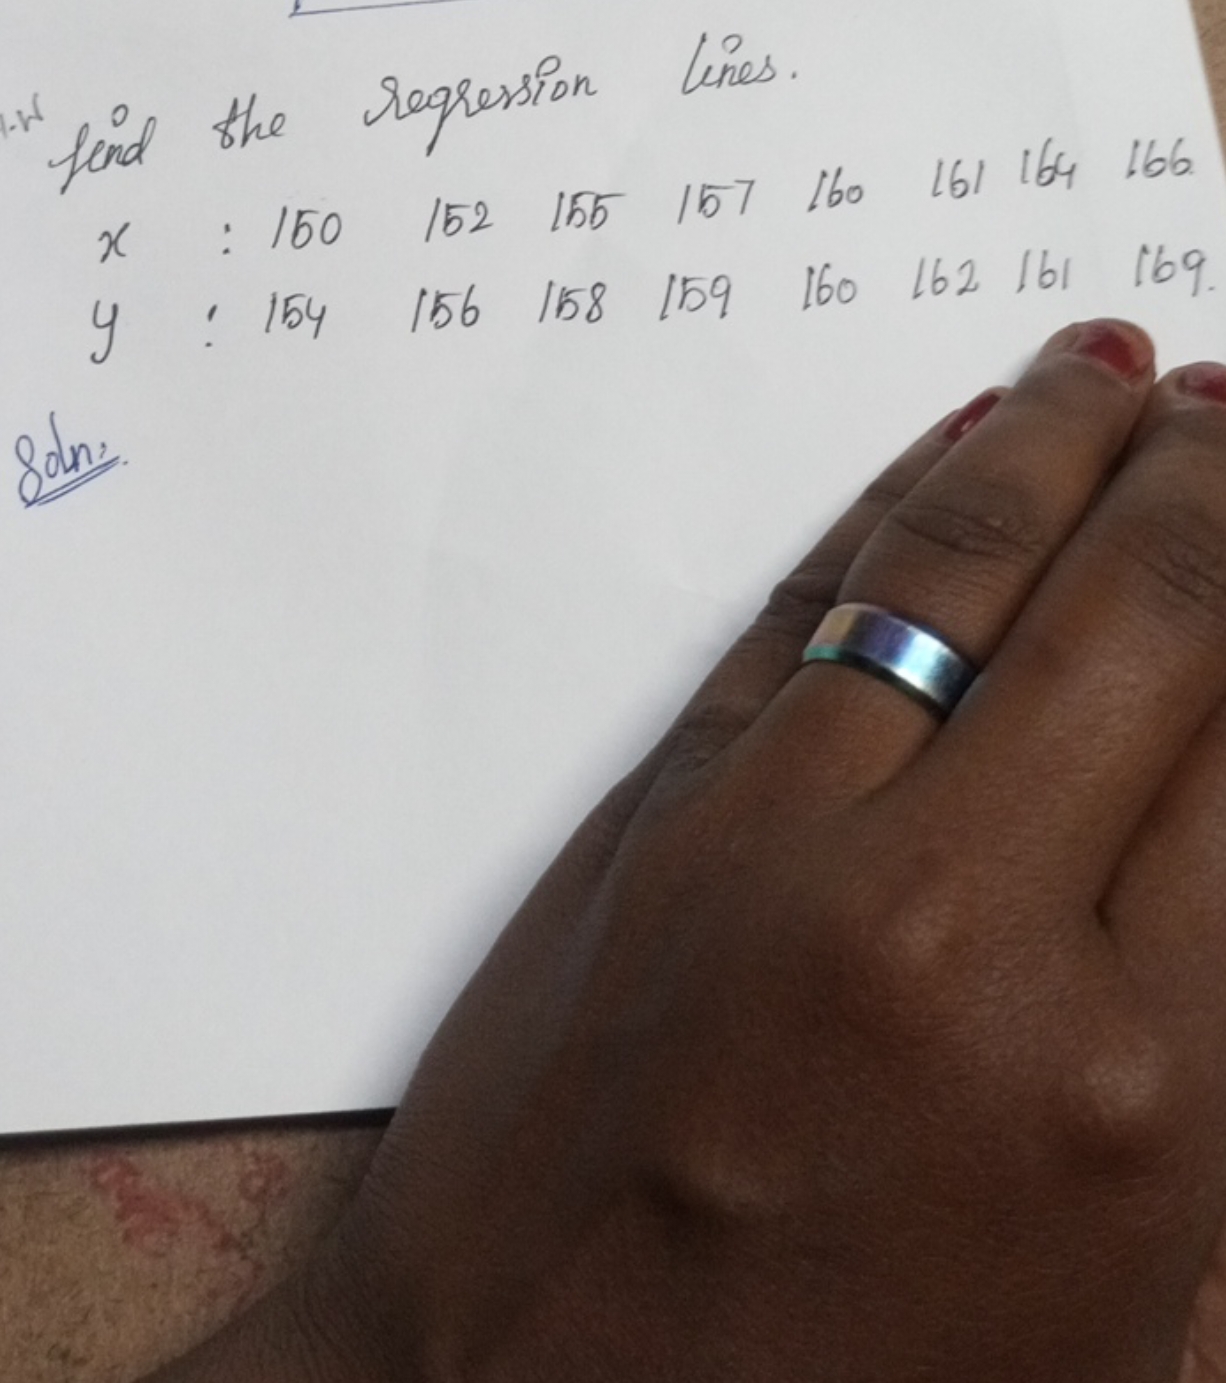 H.W find the regression lines.
x : 150 152 155 157 160 161 164 166.
y : 154 156 158 159 160 162 161 169.
Soln: